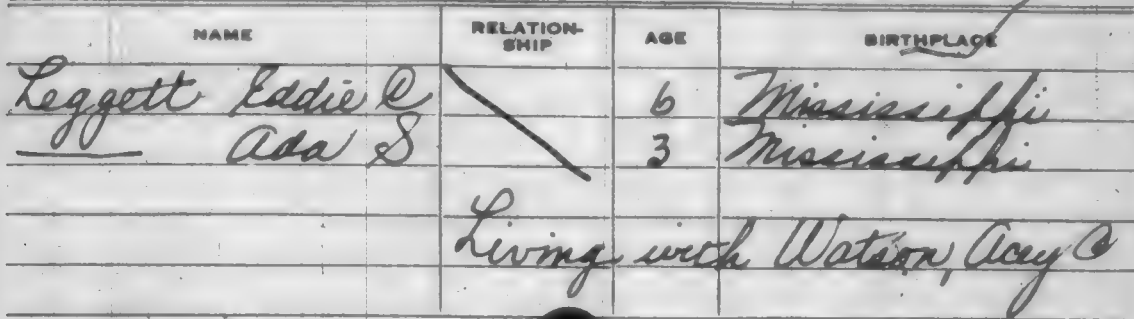 NAME RELATION-SHIP AGE BIRTHPLACE
Leggett Eddie C 6 Mississippi
Ada S 3 Mississippi
Living with Watson, Acey C